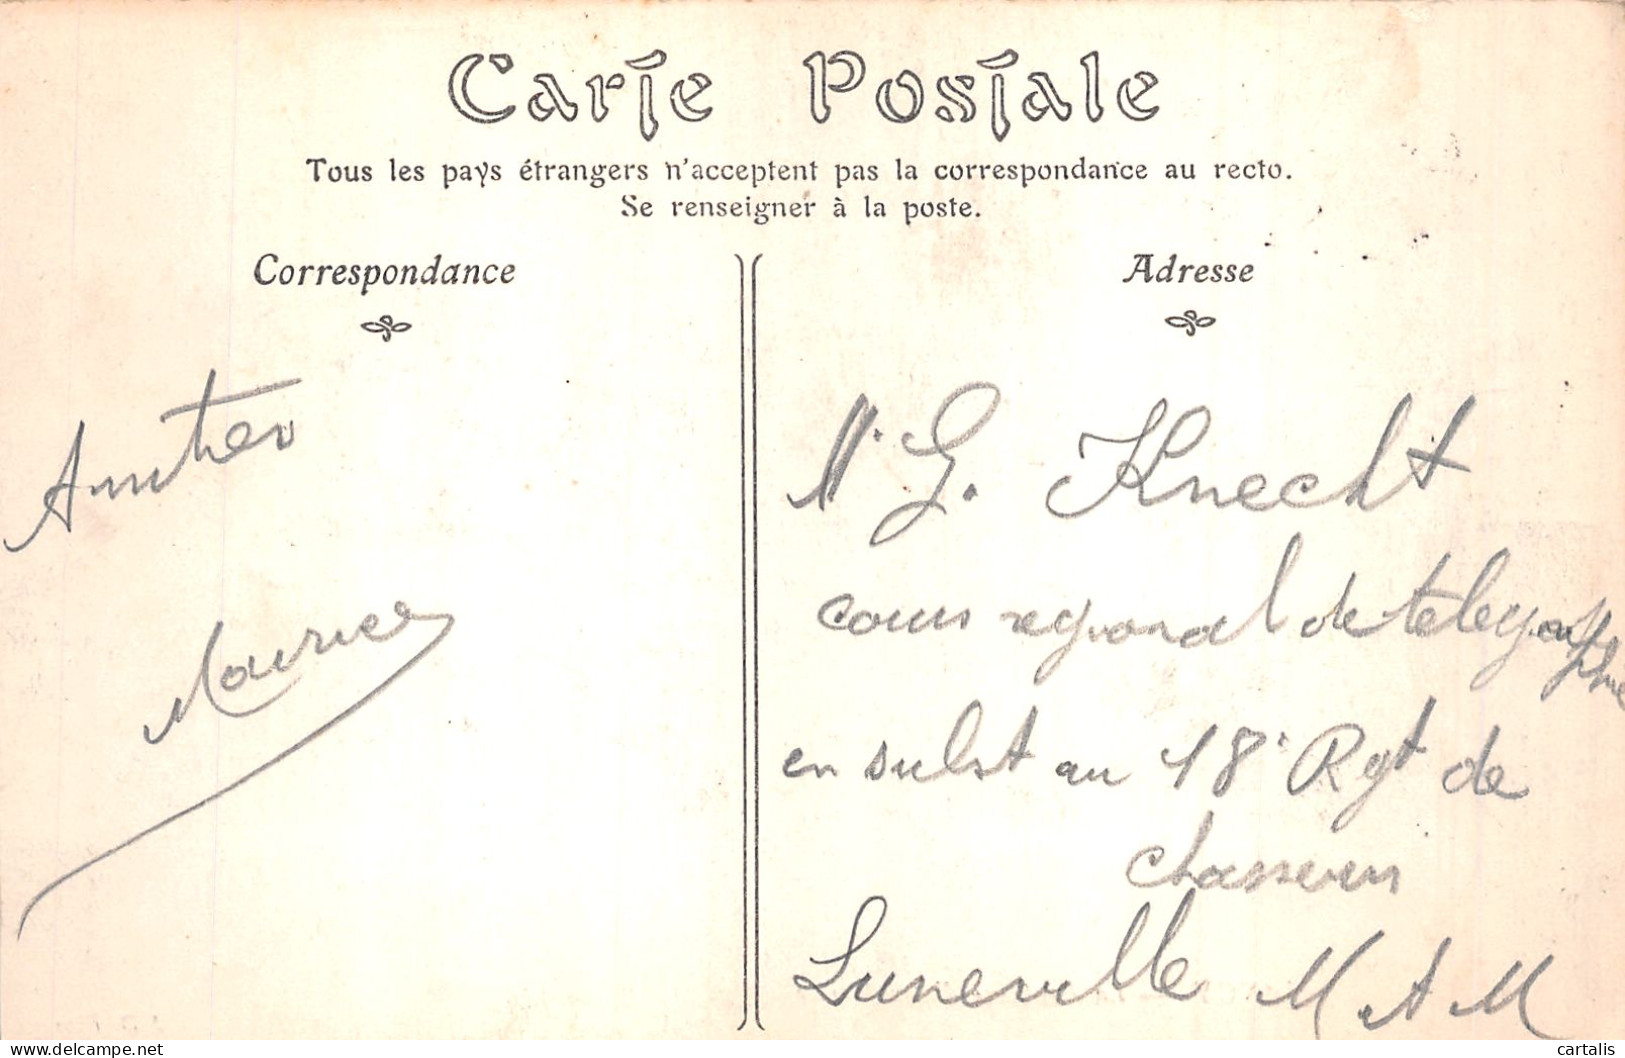 Carte Postale
Tous les pays étrangers n'acceptent pas la correspondance au recto.
Se renseigner à la poste.
Correspondance
Adresse
Amitiés
Maurice
Mr G. Knecht
cours regional de telegraphie
en subst au 18e Rgt de
chasseurs
Luneville M et M
cartalis